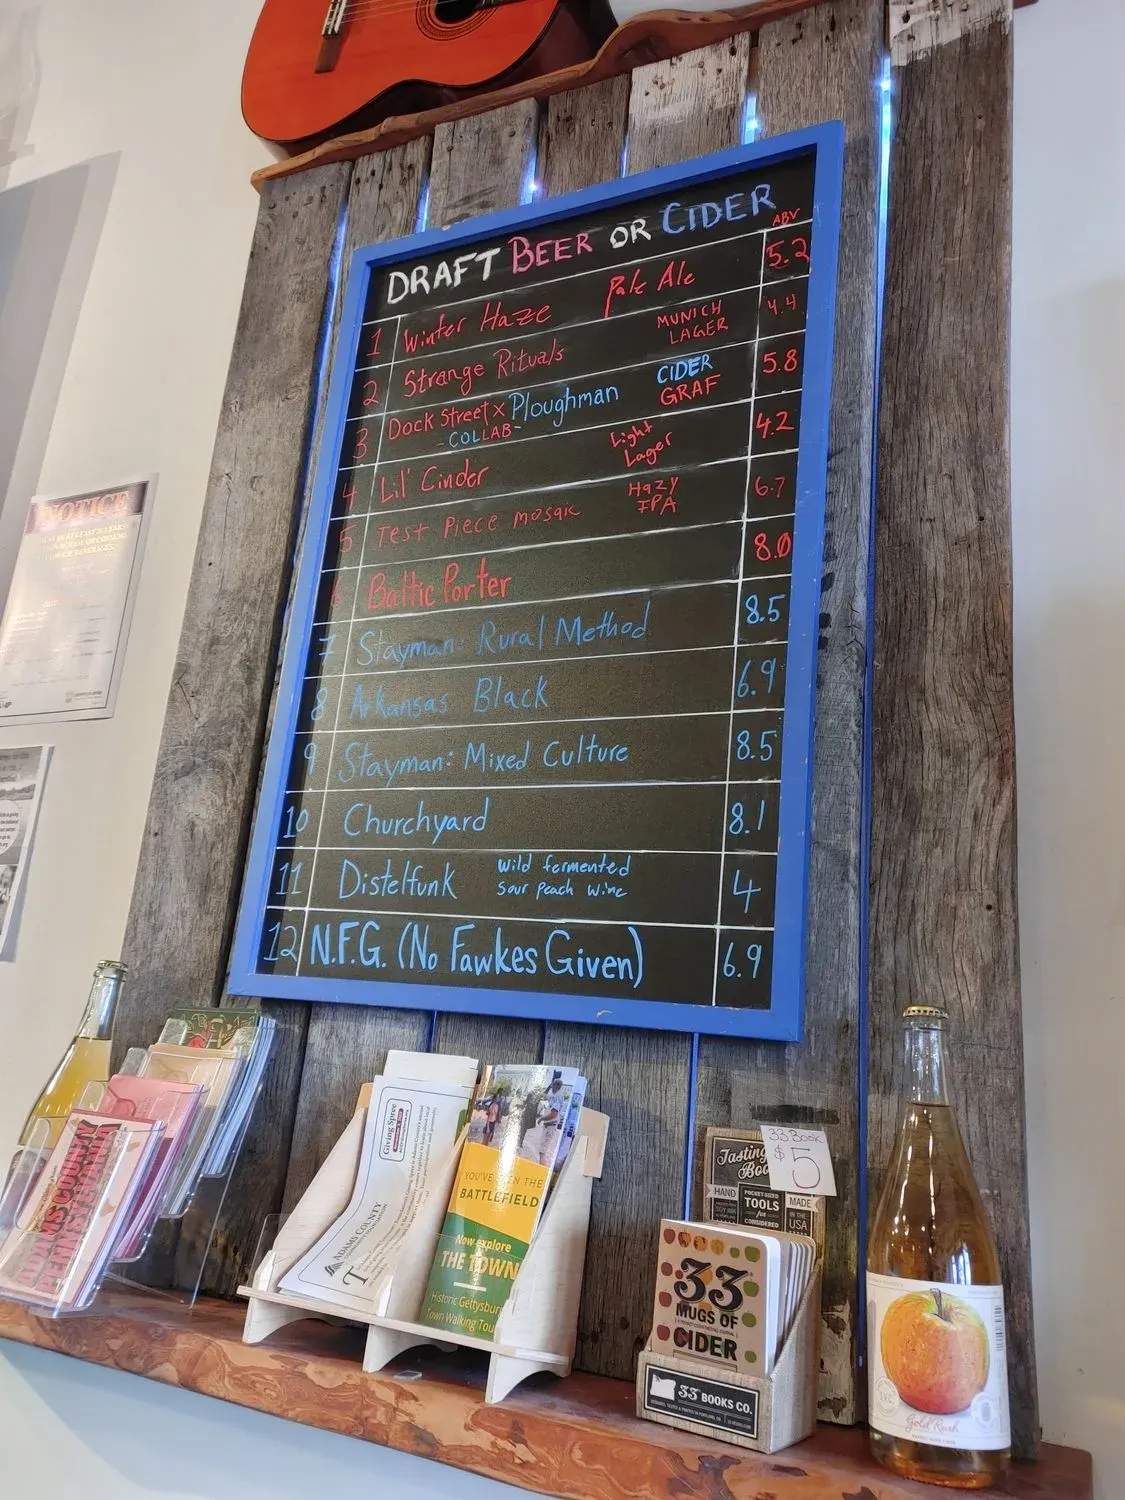 DRAFT BEER OR CIDER
ABV
1 Winter Haze Pale Ale 5.2
2 Strange Rituals MUNICH LAGER 4.4
3 Dock Street x Ploughman CIDER GRAF 5.8
-COLLAB-
4 Lil' Cinder Light Lager 4.2
5 Test Piece mosaic Hazy IPA 6.7
6 Baltic Porter 8.0
7 Stayman: Rural Method 8.5
8 Arkansas Black 6.9
9 Stayman: Mixed Culture 8.5
10 Churchyard 8.1
11 Distelfunk wild fermented sour peach wine 4
12 N.F.G. (No Fawkes Given) 6.9
NOTICE
ADAMS COUNTY
PENNSYLVANIA
Giving Spree
ADAMS COUNTY
YOU'VE SEEN THE
BATTLEFIELD
Now explore
THE TOWN
Historic Gettysburg
Town Walking Tour
33 Book
$5
Tasting
HAND
POCKET-SIZED
TOOLS
for
CONSIDERED
MADE
IN THE
USA
33
MUGS OF
CIDER
33 BOOKS CO.
Gold Rush